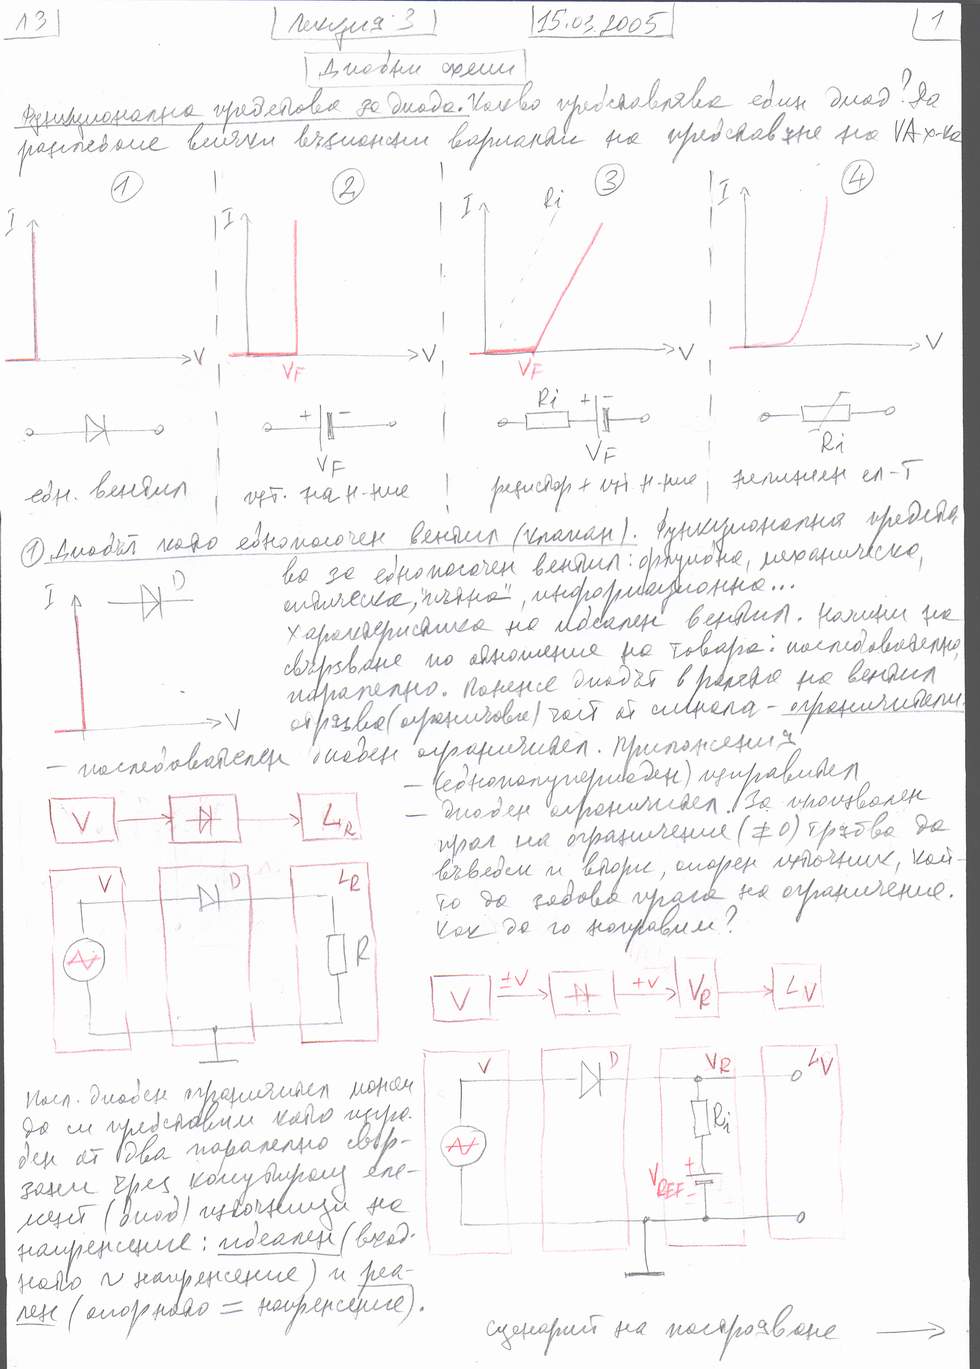 13 Лекция 3 15.03.2005 1
Диодни схеми
Функционална представа за диода. Какво представлява един диод? Да
разгледаме всички възможни варианти на представяне на VA х-ка
1 2 3 4
I I I Ri I
V V V V
VF VF
+ - Ri + - Ri
VF VF
едн. вентил изт. на н-ние резистор + изт. н-ние нелинеен ел-т
1 Диодът като еднопосочен вентил (клапан). Функционална предста-
ва за еднопосочен вентил: флуидна, механическа,
оптическа, "пътна", информационна...
I D
Характеристика на идеален вентил. Начини на
свързване по отношение на товара: последователно,
паралелно. Понеже диодът в ролята на вентил
V
отрязва (ограничава) част от сигнала - ограничители.
- последователен диоден ограничител. Приложения
- (еднополупериоден) изправител
- диоден ограничител. За произволен
праг на ограничение (≠0) трябва да
въведем и втори, опорен източник, кой-
то да задава прага на ограничение.
Как да го направим?
V LR
V D LR
R
V ±V +V VR LV
V D VR LV
Ri
+
VREF -
Посл. диоден ограничител можем
да си представим като изгра-
ден от два паралелно свър-
зани чрез комутиращ еле-
мент (диод) източници на
напрежение: идеален (вход-
ното ~ напрежение) и реа-
лен (опорното = напрежение).
сценарий на построяване →